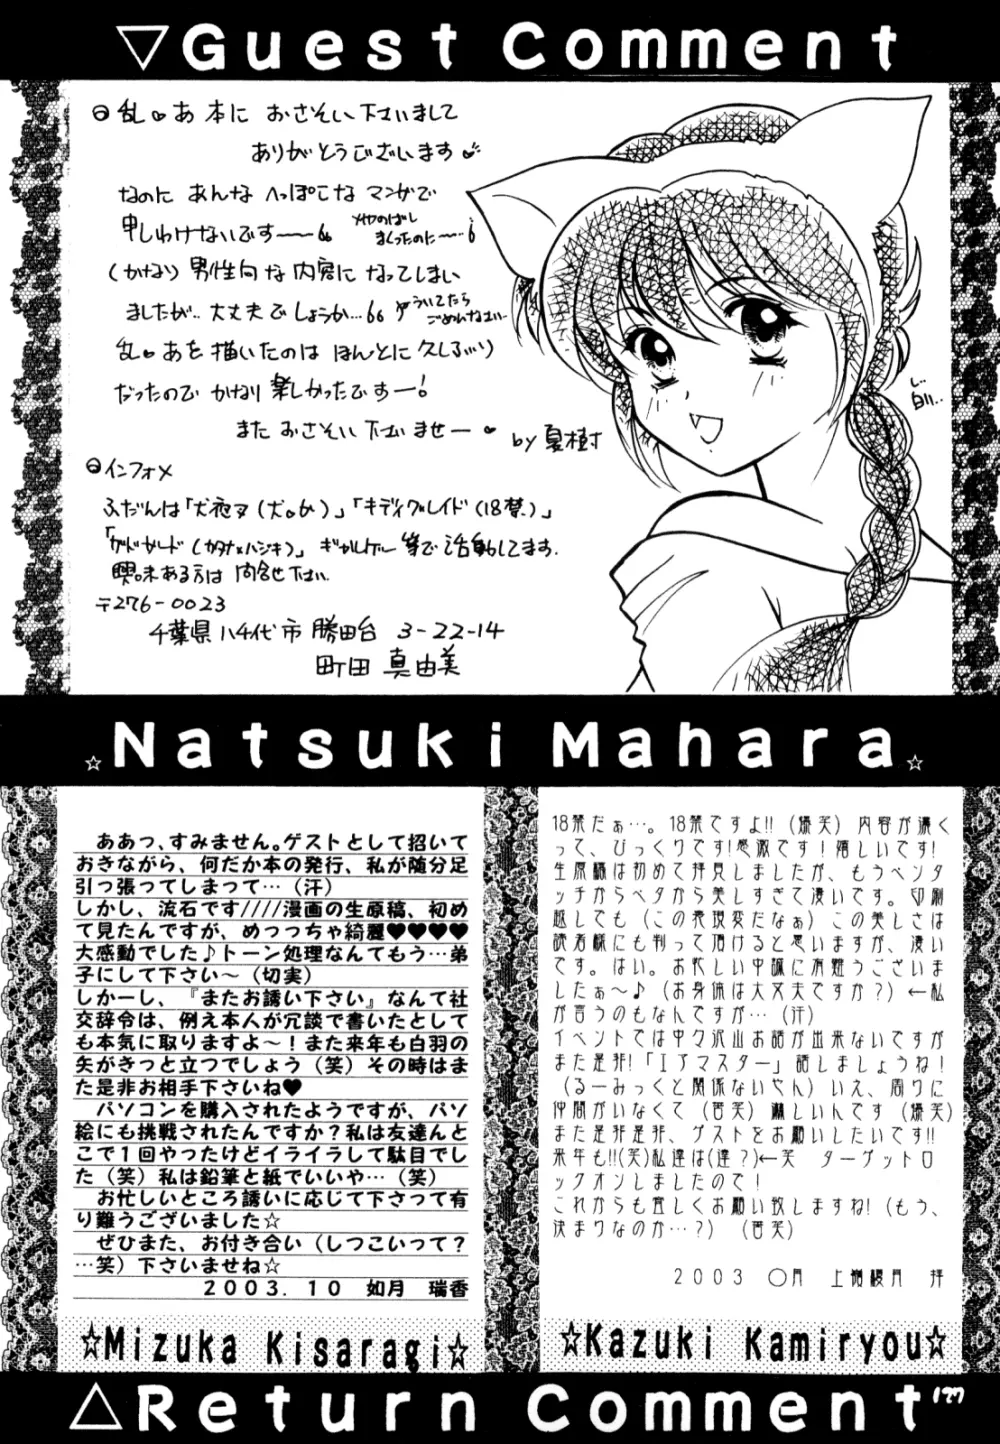 ▽Guest Comment
乱♥あ 本に おさそい 下さいまして
ありがとうございます
なのに あんな へっぽこな マンガで
申しわけないです〜〜 〆切のばし
まくったのに〜…
(かなり) 男性向な内容に なってしまい
ましたが‥ 大丈夫でしょうか…
ごめんなさい
乱♥あを 描いたのは ほんとに 久しぶり
だったので かなり 楽しかったですー!
また おさそい 下さいませー
by 夏樹
白い‥
インフォメ
ふだんは「犬夜叉(犬×か)」「キディグレイド(18禁)」
ギャルゲー 等で 活動してます.
興味ある方は 問合せ下さい.
〒276-0023
千葉県八千代市 勝田台 3-22-14
町田 真由美
☆Natsuki Mahara☆
ああっ、すみません。ゲストとして招いて
おきながら、何だか本の発行、私が随分足
引っ張ってしまって…(汗)
しかし、流石です////漫画の生原稿、初め
て見たんですが、めっっちゃ綺麗♥♥♥♥
大感動でした♪トーン処理なんてもう…弟
子にして下さい〜(切実)
しかーし、『またお誘い下さい』なんて社
交辞令は、例え本人が冗談で書いたとして
も本気に取りますよ〜!また来年も白羽の
矢がきっと立つでしょう(笑)その時はま
た是非お相手下さいね♥
パソコンを購入されたようですが、パソ
絵にも挑戦されたんですか?私は友達んと
こで1回やったけどイライラして駄目でし
た(笑)私は鉛筆と紙でいいや…(笑)
お忙しいところ誘いに応じて下さって有
り難うございました☆
ぜひまた、お付き合い(しつこいって?
…笑)下さいませね☆
2003.10 如月 瑞香
☆Mizuka Kisaragi☆
18禁だぁ…。18禁ですよ!!(爆笑) 内容が濃く
って、びっくりです!感激です!嬉しいです!
生原稿は初めて拝見しましたが、もうペンタ
ッチからベタから美しすぎて凄いです。印刷
越しても(この表現変だなぁ)この美しさは
読者様にも判って頂けると思いますが、凄い
です。はい。お忙しい中誠に有難うございま
したぁ〜♪(お身体は大丈夫ですか?)←私
が言うのもなんですが…(汗)
イベントでは中々沢山お話が出来ないですが
また是非!「ITマスター」話しましょうね!
(るーみっくと関係ないやん)いえ、周りに
仲間がいなくて(苦笑)淋しいんです(爆笑)
また是非是非、ゲストをお願いしたいです!!
来年も!!(笑)私達は(達?)←笑 ターゲットロ
ックオンしましたので!
これからも宜しくお願い致しますね!(もう、
決まりなのか…?)(苦笑)
2003 〇月 上領榎月 拝
☆Kazuki Kamiryou☆
△Return Comment
177